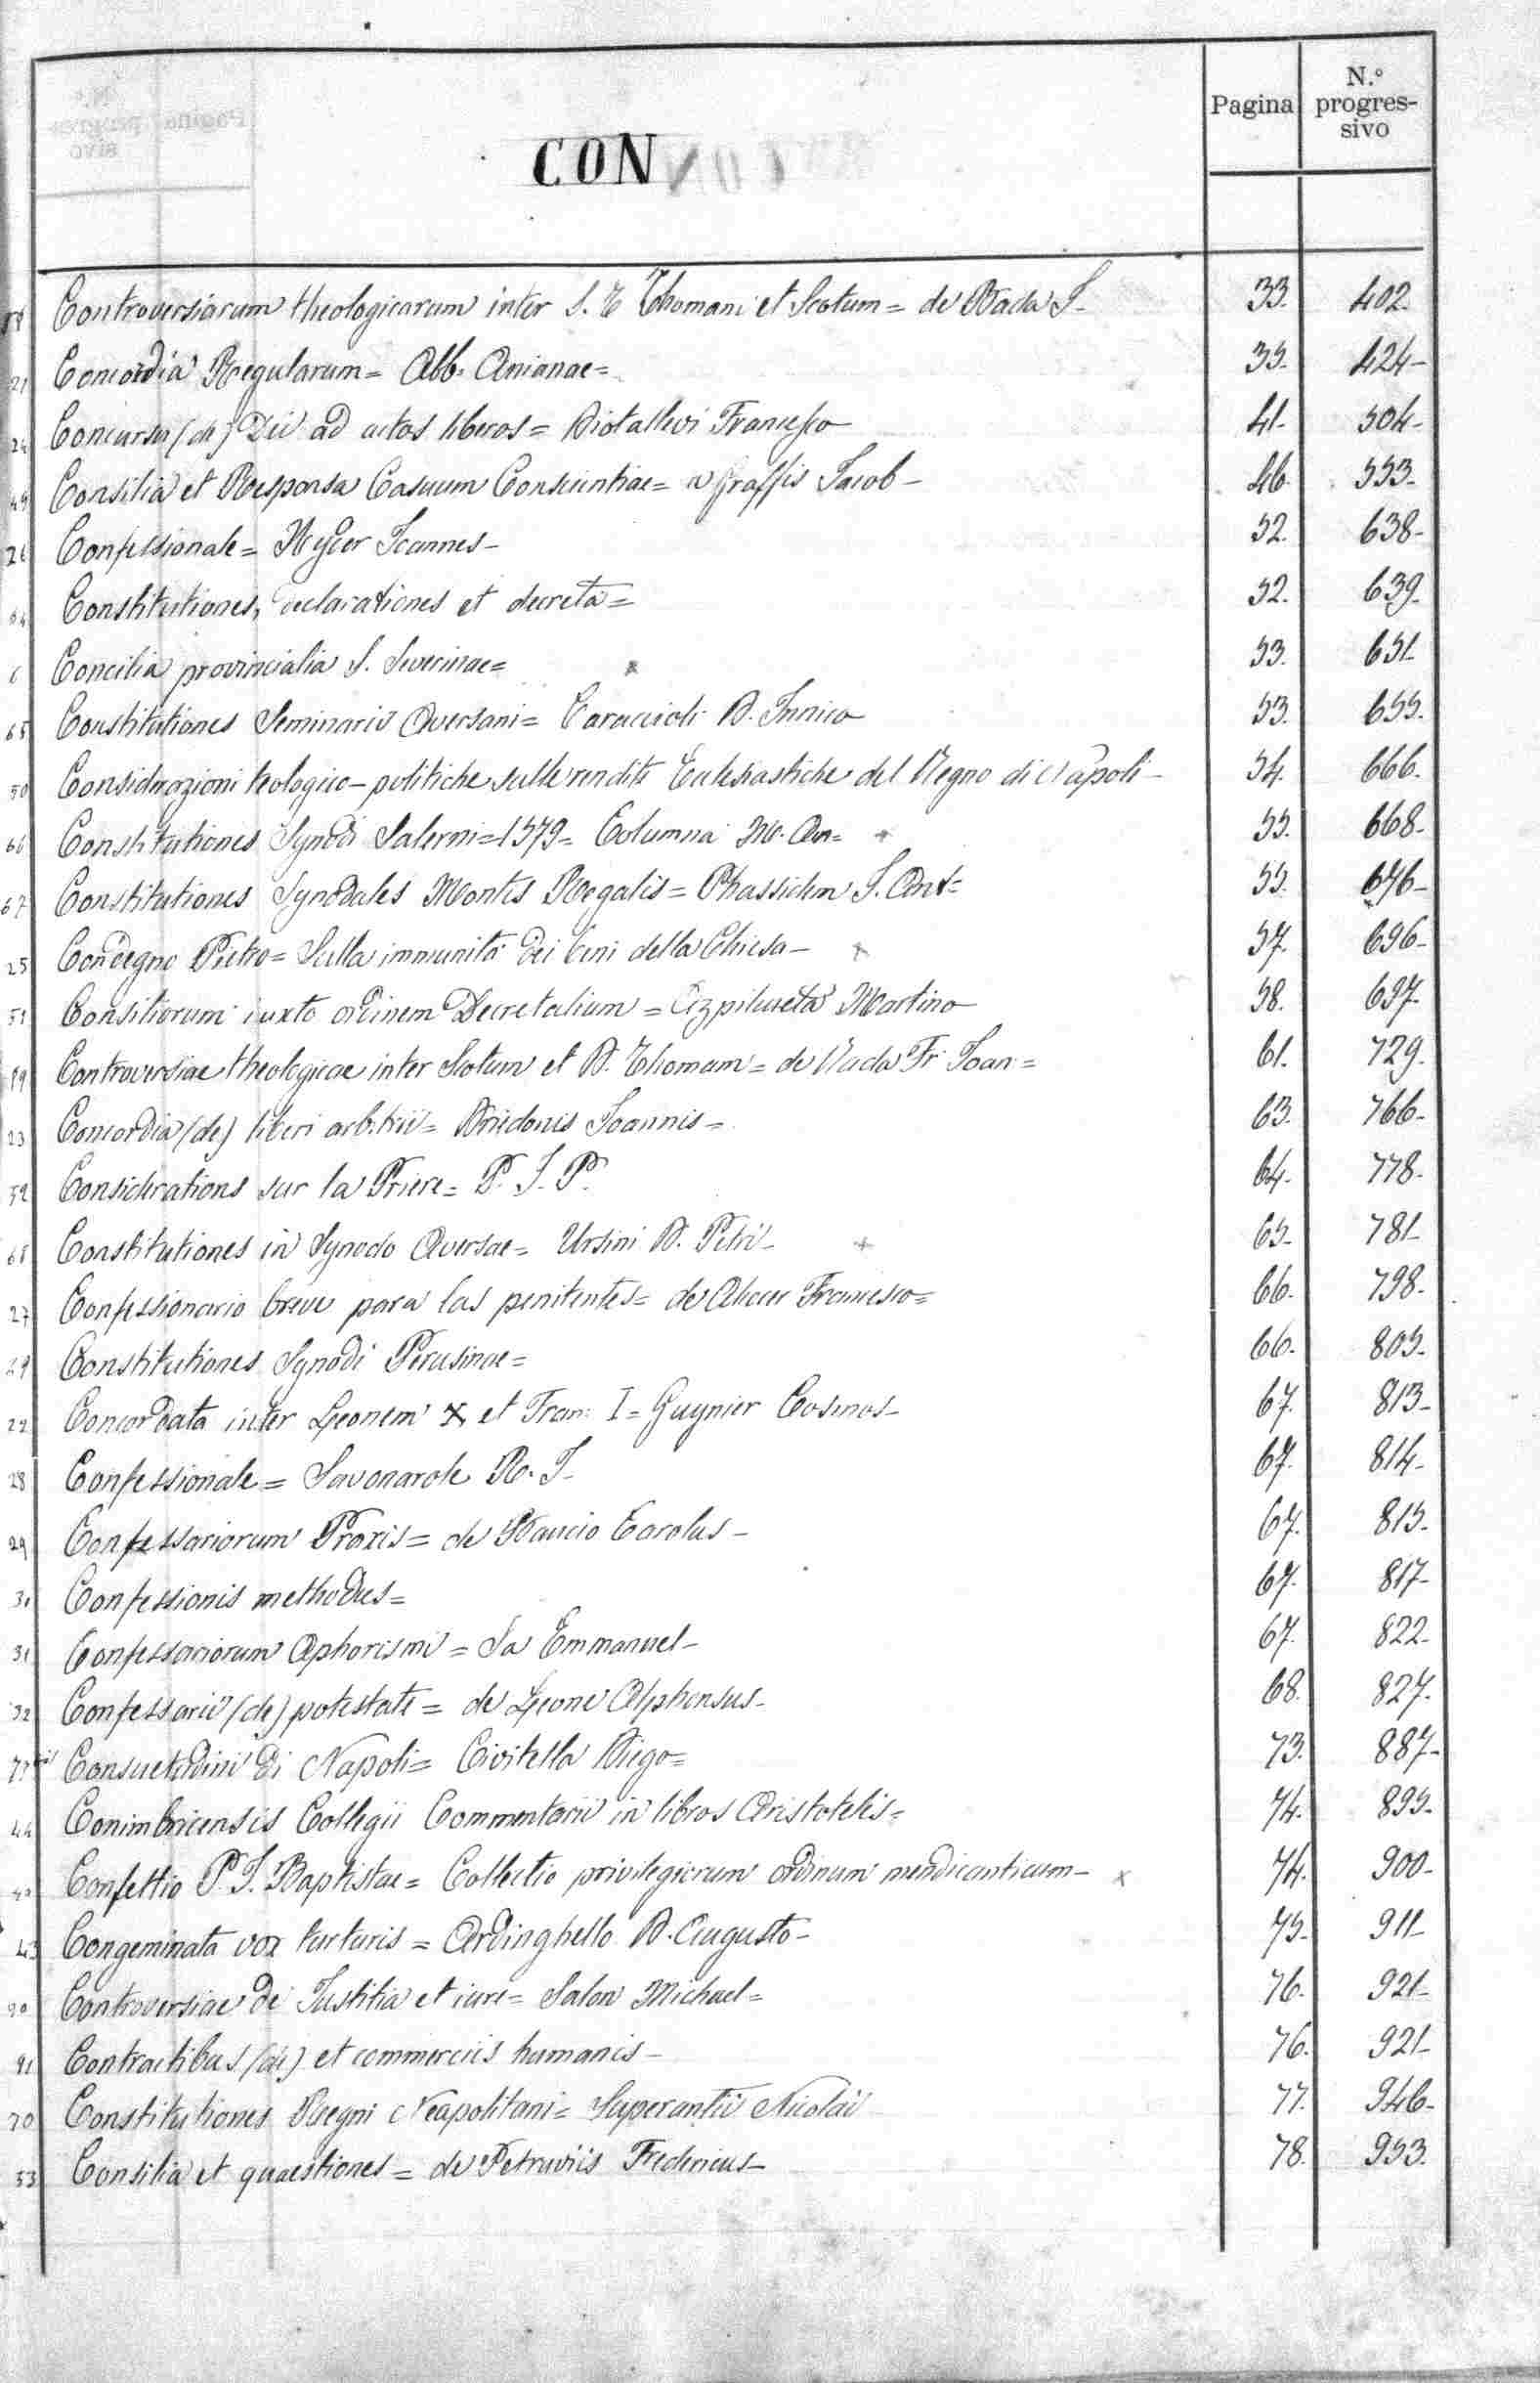 Pagina
N.º progres-
sivo
CON
88 Controversiarum theologicarum inter S. T Thomam et Scotum = de Rada J- 33. 402.
21 Concordia Regularum = Abb. Anianae = 35. 424-
24 Concursu (de) Dei ad actos liberos = Diotallevi Francesco 41- 504-
49 Consilia et Responsa Casuum Conscientiae = a Graffis Jacob- 46. 553-
26 Confessionale = Nyder Joannes- 52. 638-
64 Constitutiones, declarationes et decreta = 52. 639.
6 Concilia provincialia S. Severinae = x 53. 651-
65 Constitutiones Seminarii Aversani = Caraccioli D. Innico 53. 655.
50 Considerazioni teologico-politiche sulle rendite Ecclesiastiche del Regno di Napoli- 54. 666.
66 Constitutiones Synodi Salerni = 1579 = Columna M. An = x 55. 668-
67 Constitutiones Synodales Montis Regalis = J. Ant = 55. 676-
25 Condegno Pietro = Sulla immunità dei beni della Chiesa- x 57. 696-
51 Consiliorum iuxta ordinem Decretalium = Azpilcueta Martino 58. 697.
89 Controversiae theologicae inter Scotum et D. Thomam = de Rada Fr. Joan = 61. 729.
23 Concordia (de) liberi arbitrii = Driedonis Joannis = 63. 766-
52 Considerations sur la Priere = P. J. P. 64. 778-
68 Constitutiones in Synodo Aversae = Ursini D. Petri- x 65- 781-
27 Confessionario breve para las penitentes = de Francisco = 66. 798.
69 Constitutiones Synodi Perusinae = 66. 805.
22 Concordata inter Leonem X et Fran: I = Guynier Cosmos- 67. 813-
28 Confessionale = Savonarole R. J- 67. 814-
29 Confessariorum Praxis = de Baucio Carolus- 67. 815.
30 Confessionis methodus = 67. 817-
31 Confessariorum Aphorismi = Sa Emmanuel- 67. 822-
32 Confessarii (de) potestate = de Leone Alphonsus- 68. 827.
77bis Consuetudini di Napoli = Civitella Diego = 73. 887-
44 Conimbricensis Collegii Commentarii in libros Aristotelis = 74. 895-
40 Confettio P. J. Baptistae = Collectio privilegiorum ordinum mendicantium- x 74. 900-
43 Congeminata vox turturis = Ardinghello D. Augusto- 75- 911-
90 Controversiae de Justitia et iure = Salon Michael = 76. 921-
91 Contractibus (de) et commerciis humanis- 76. 921-
70 Constitutiones Regni Neapolitani = Superantii Nicolai 77. 946-
53 Consilia et quaestiones = de Petruviis Fredericus- 78. 953.